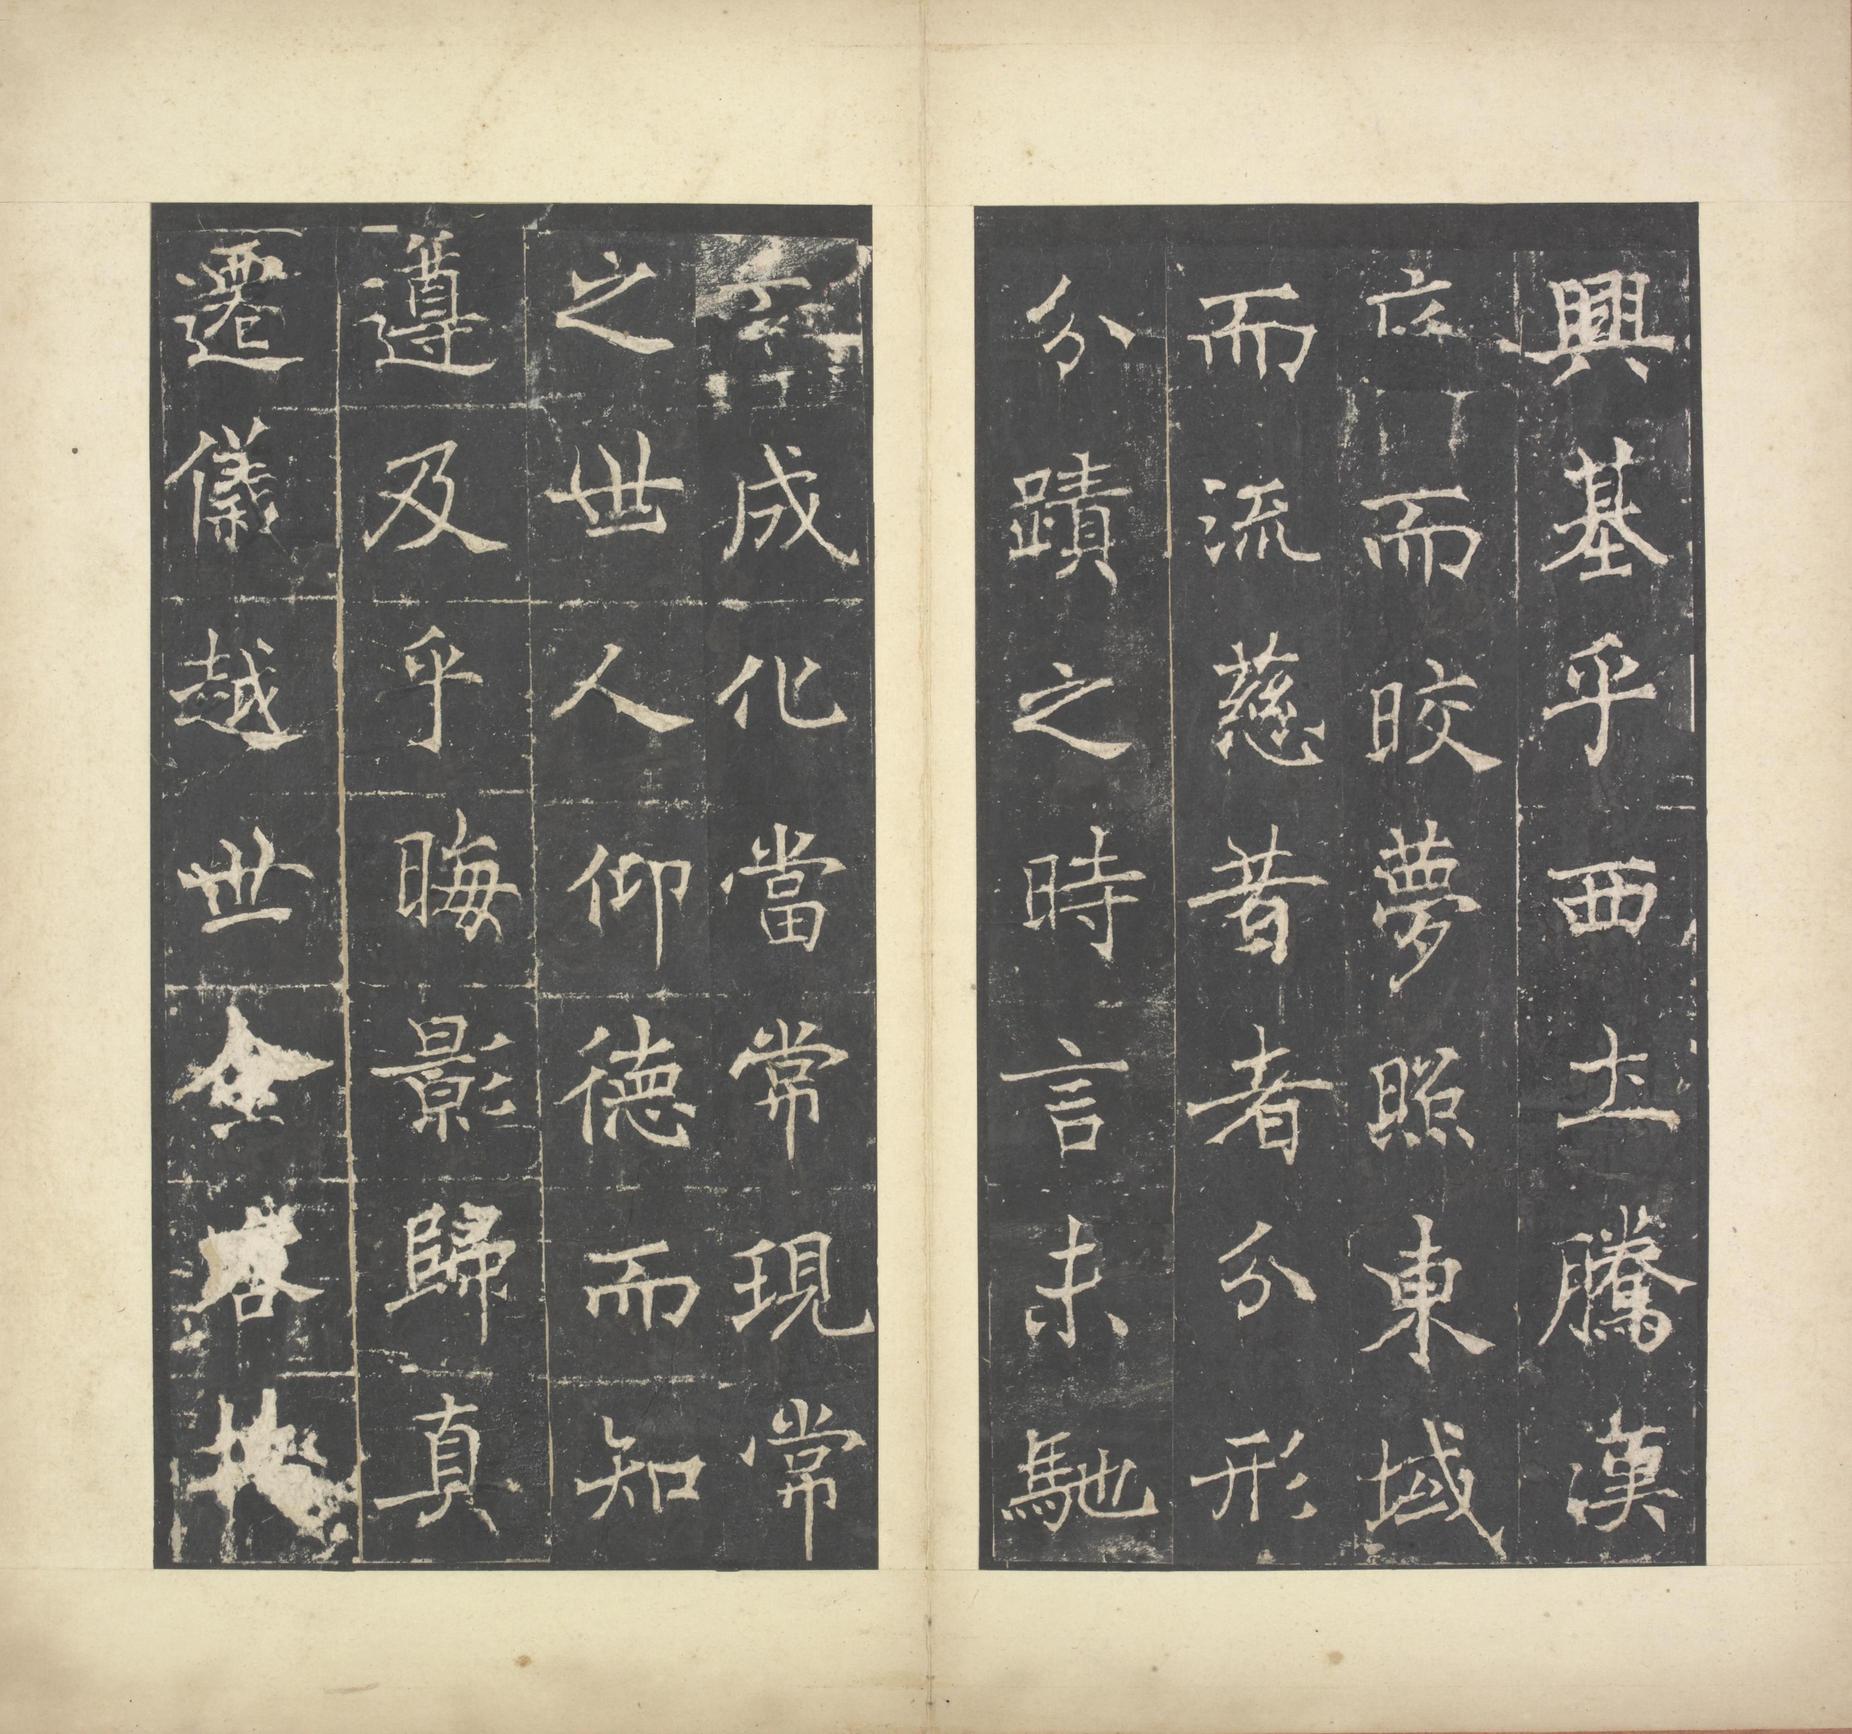 興基乎西土騰漢
而晈夢照東域
而流慈昔者分形
分蹟之時言未馳
成化當常現常
之世人仰德而知
遵及乎晦影歸真
遷儀越世金容